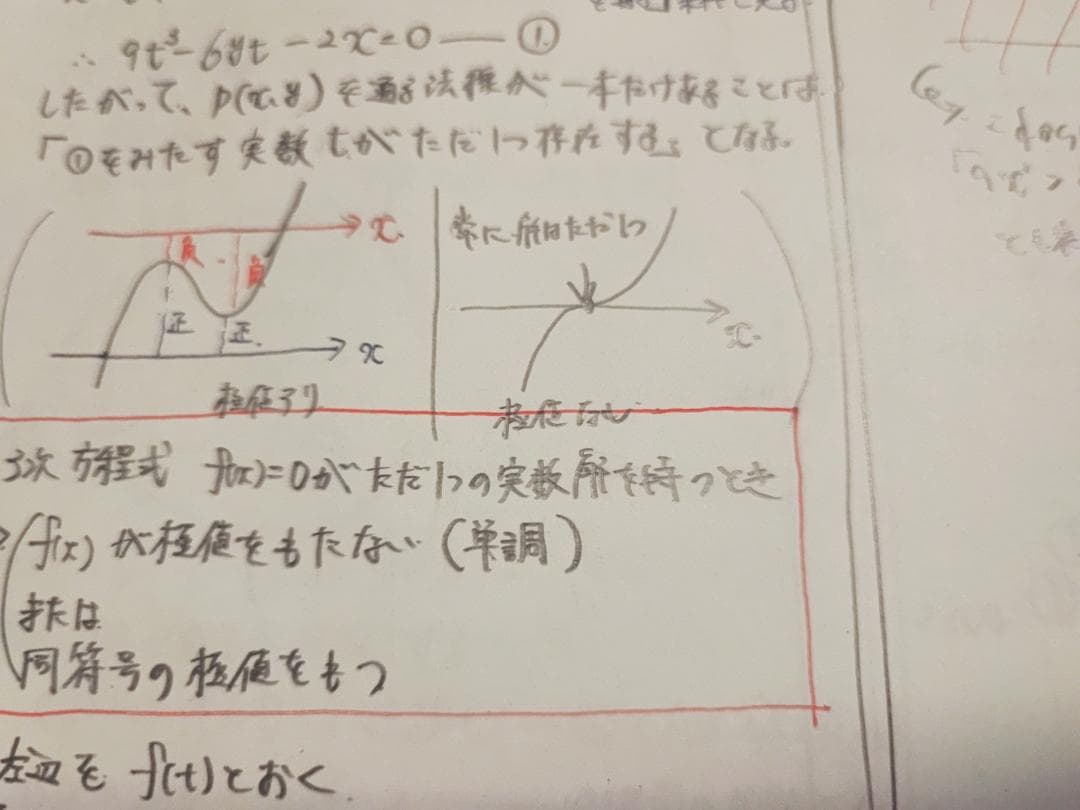 ∴ 9t³-6yt-2x=0 — ①
したがって、P(x,y)を通る法線が一本だけあることは、
「①をみたす実数tがただ1つ存在する」となる。
x
負
負
正
正
x
極値アリ
常に解はただ1つ
x
極値なし
3次方程式 f(x)=0がただ1つの実数解を持つとき
f(x)が極値をもたない(単調)
または
同符号の極値をもつ
左辺を f(t)とおく